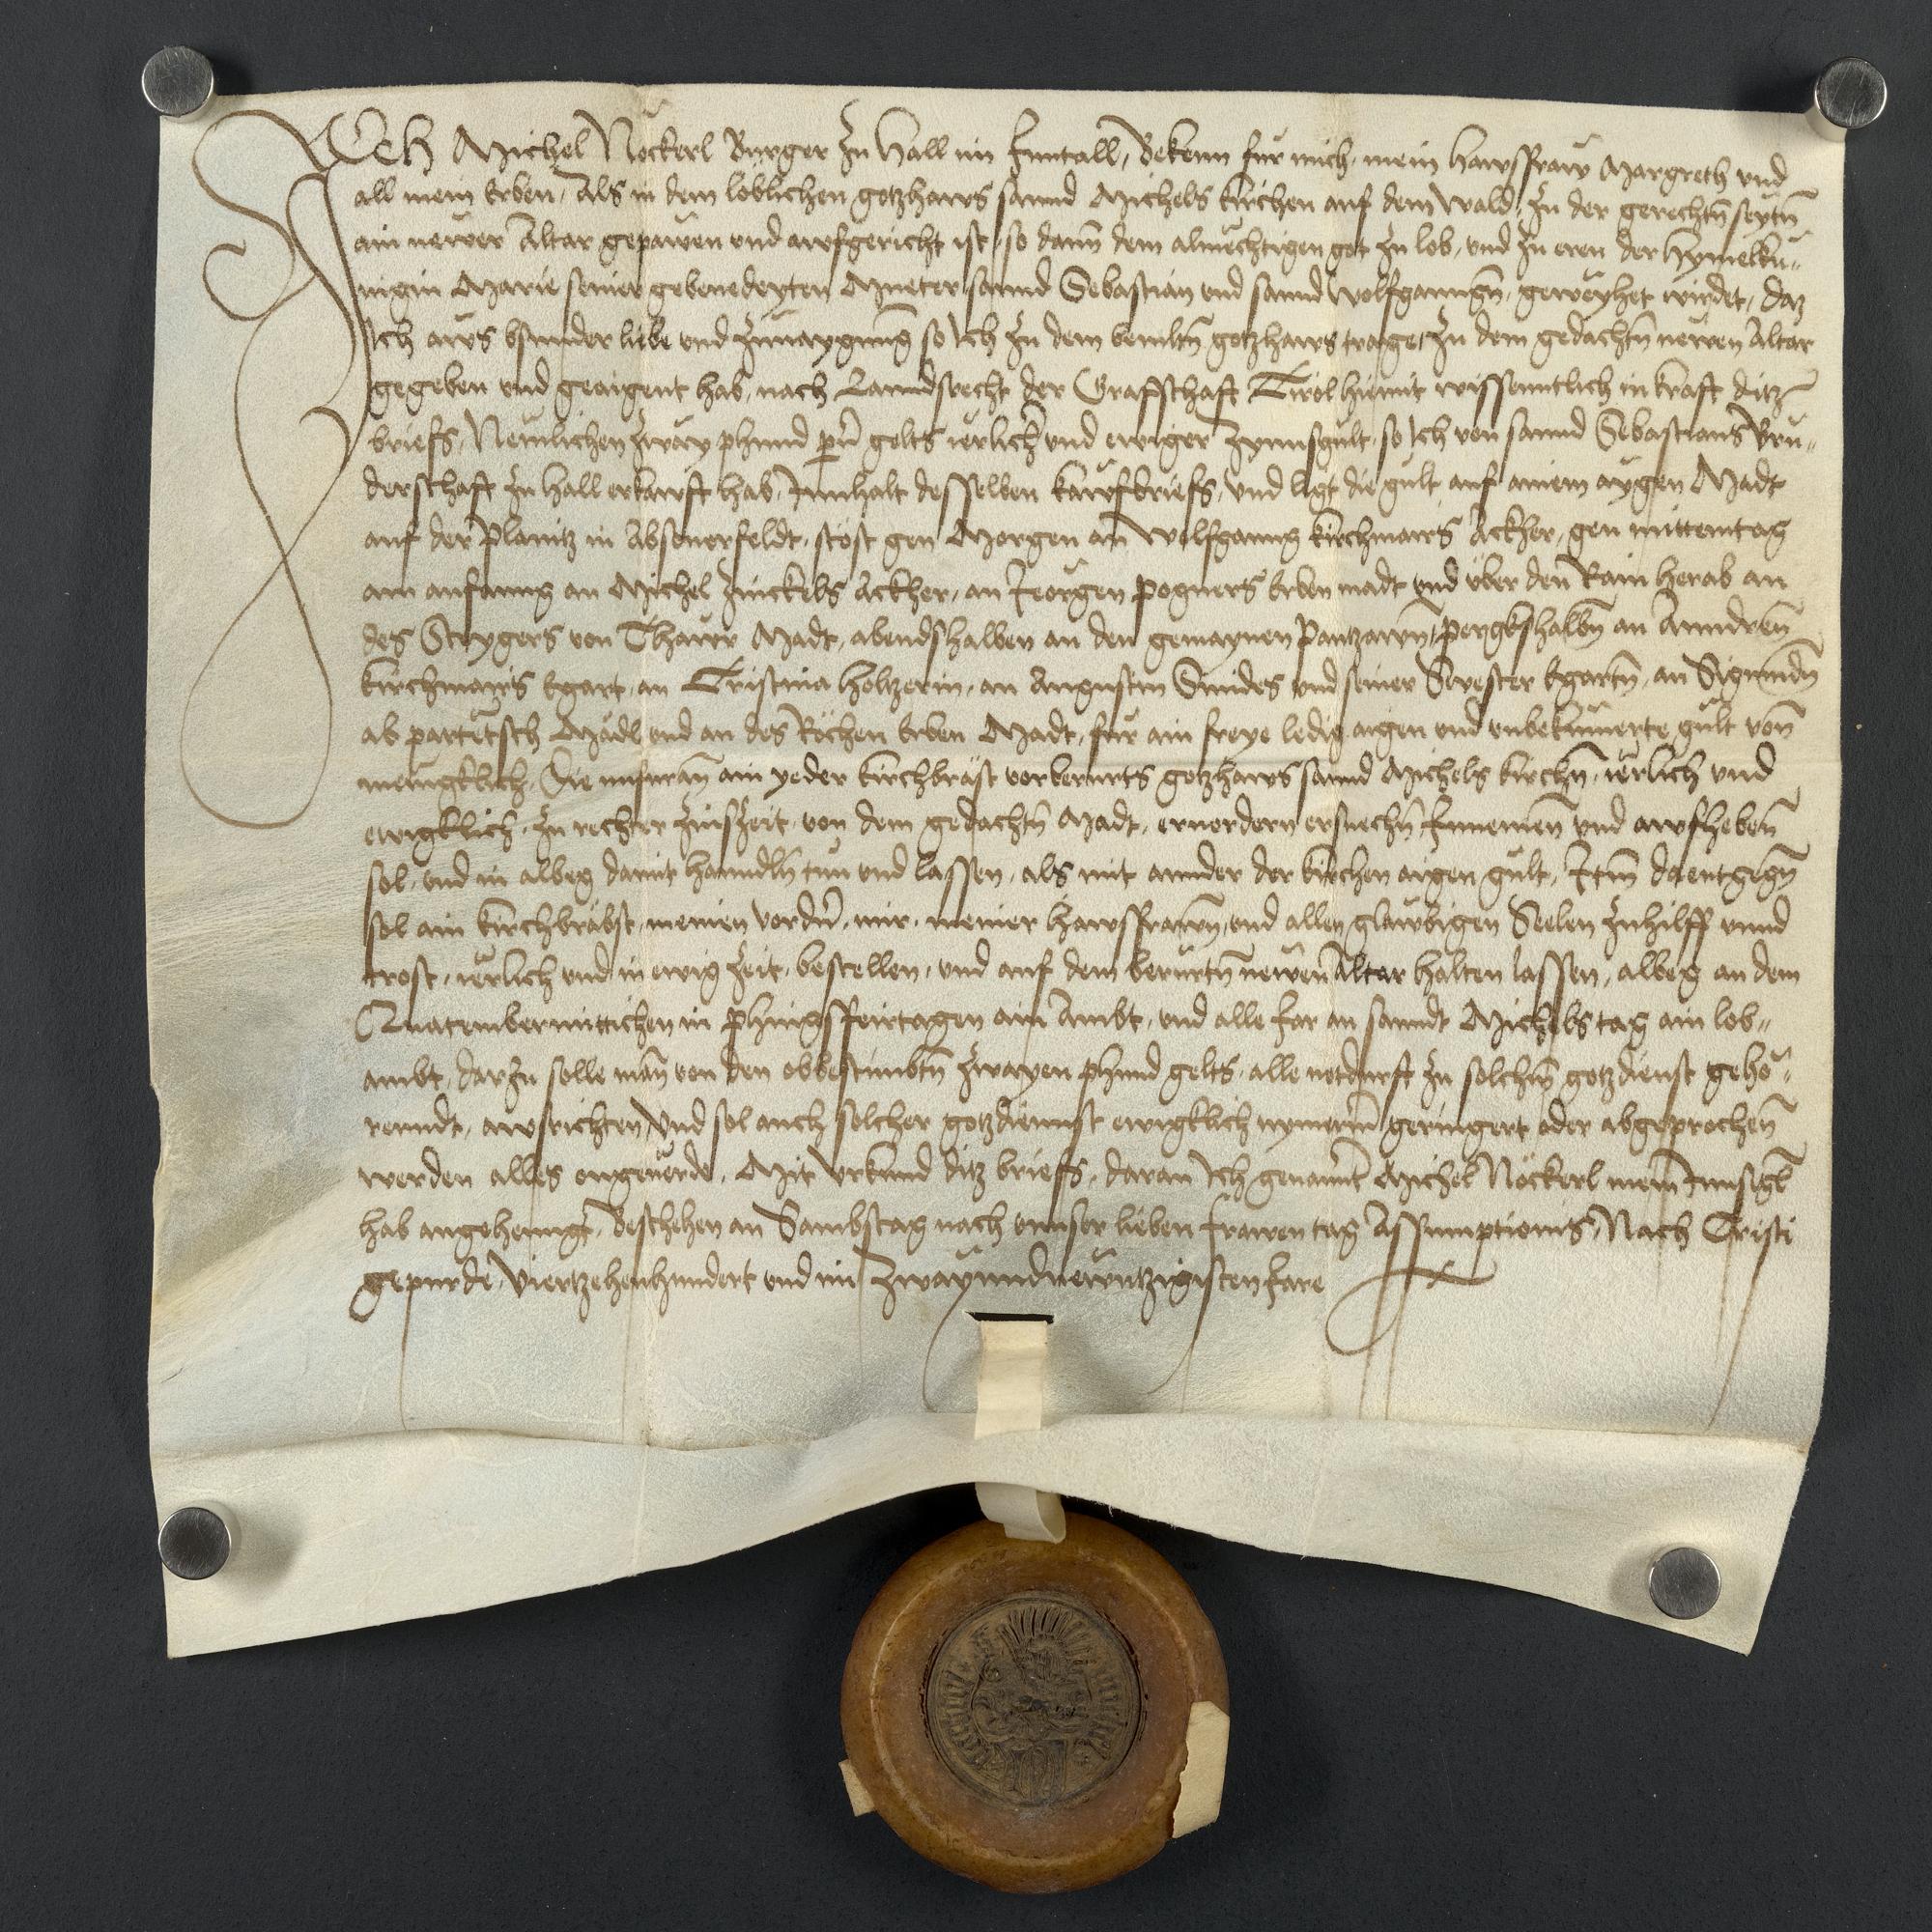 Ich Michel Nöckerl Burger zu Hall im Inntall, Bekenn fur mich, mein hawsfraw Margreth und
all mein Erben, Als in dem loblichen gotzhaws sannd Michels kirchen auf dem Wald, zu der gerechtn̄ seytn̄
ain newer Altar gepawen und aufgericht ist, so dann dem almechtigen got zu lob, und zu eren der hymelku„
nigin Marie seiner gebenedeyten Mueter sannd Sebastian und sannd Wolfganngn̄, geweyhet wirdet, daz
Ich aws bsunder liebe und zunaygung so Ich zu dem bemeltn̄ gotzhaws trage, zu dem gedachtn̄ newen Altar
gegeben und geaigent hab, nach Lanndsrecht der Grafschaft Tirol hiemit wissenntlich in kraft ditz
briefs, Nemlichen zway phund p̄n̄ gelts ierlich und ewiger zynnsgult, so Ich von sannd Sebastians Bru„
derschaft zu Hall erkawft hab, Innhalt desselben kawfbriefs, und ligt die gult auf ainem aygen Madt
auf der Planitz in Absamerfeldt, stöst gen Morgen an Wolfganng kirchmairs Ackher, gen mittemtag
am anfanng an Michel Zinckels Ackher, an Jeorgen Pogners Erben madt und über den Rain herab an
des Steygers von Thawr Madt, abendshalben an den gemaynen Pantzawn, Pergkshalbn̄ an Anndreen
kirchmairs Egart, an Cristina Holtzerin, an Augustin Smides und seiner Swester Egartn̄, an Sigmundn̄
ab partetsch Mädl und an des Köchen Erben Madt, für ain freye ledig aigen und unbekumerte gult von
menigklich, Die nufuran̄ ain yeder kirchbräst vorberurts gotzhaws sannd Michels kirchn̄, ierlich und
ewigklich, zu rechter zinszeit, von dem gedachtn̄ Madt, ervordern ersuechn̄ Innemen und aufheben
sol, und in albeg damit hanndln̄ tun und lassen, als mit annder der kirchen aigen gult, Item̄ daentgegn̄
sol ain kirchbräbst, meinen vordn̄, mir, meiner hawsfrawn̄, und allen glawbigen Seelen zuhilff unnd
trost, ierlich und in ewig zeit, bestellen, und auf dem berurtn̄ newen Altar halten lassen, albeg an dem
Quatembermittichen in Phingstfeirtagen ain Ambt, und alle Jar an sanndt Michels tag ain lob„
ambt, darzu solle man̄ von den obbestimbtn̄ zwayen phund gelts, alle notdurft zu solchm̄ gotzdienst gehö„
renndt, awsrichten, Und sol auch solcher gotzdiennst ewigklich nymerm̄ geringert oder abgeprochen
werden alles ongeverde, Mit Urkund ditz briefs, daran Ich genannt Michel Nöckerl mein Innsigl
hab angehenngt, Beschehen an Sambstag nach unnser lieben frawen tag Assumptionis, Nach Cristi
gepurde, Viertzehenhundert und im Zwayundnewntzigisten Jare